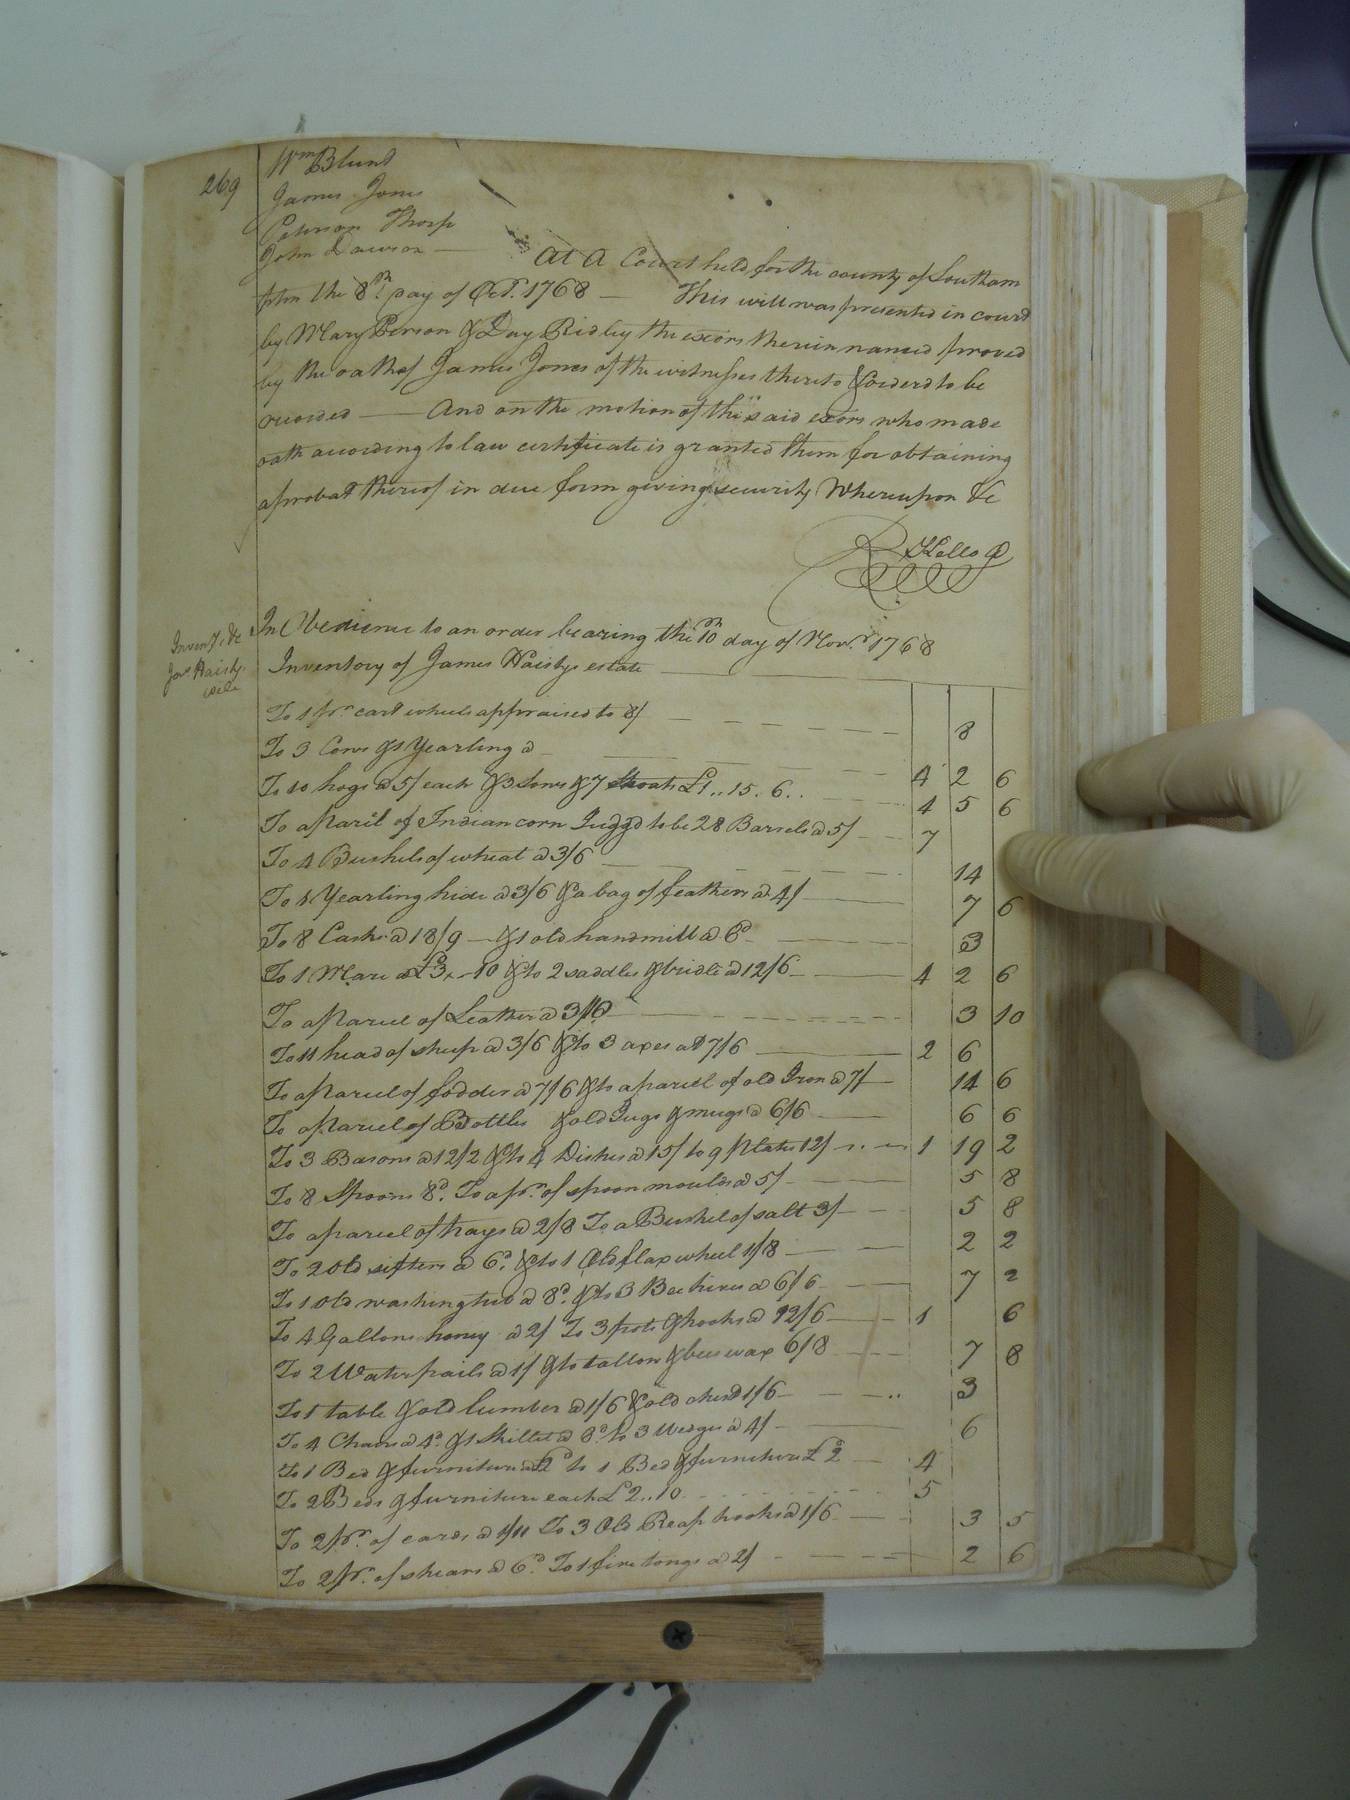 269
Wm Blunt
James Jones
Peterson Thorp
John Dawson
At A Court held for the county of Southam
pton the 8th day of Oct. 1768 — This will was presented in court
by Mary Person & Day Ridley the exors therein named proved
by the oath of James Jones of the witnesses thereto & orderd to be
recorded — And on the motion of the said exors who made
oath according to law certificate is granted them for obtaining
a probat thereof in due form giving security Whereupon &c
R Kello
Invent. &c
Jas. Haisty
In Obedience to an order bearing the 10th day of Nov. 1768
Inventory of James Haistys estate
To 1 pr. cart wheels appraised to 8/ 8
To 3 Cows & 1 Yearling @ 4 2 6
To 10 hogs @ 5/ each & 3 Sows & 7 Shoats £1..15.6.. 4 5 6
To a Parcil of Indian corn Judgd to be 28 Barrels @ 5/ 7
To 4 Bushels of wheat @ 3/6 14
To 1 Yearling hide @ 3/6 & a bag of feathers @ 4/ 7 6
To 8 Casks @ 18/9 — & 1 old handmill @ 6d 3
To 1 Mare @ £3..10 & to 2 saddles & bridle @ 12/6 4 2 6
To a Parcel of Leather @ 3/10 3 10
To 11 head of sheep @ 3/6 & to 3 axes at 7/6 2 6
To a Parcel of fodder @ 7/6 & to a parcel of old Iron @ 7/ 14 6
To a Parcel of Bottles & old Jugs & mugs @ 6/6 6 6
To 3 Basons @ 12/2 & to 4 Dishes @ 15/ to 9 plates 12/ 1 19 2
To 8 Spoons 8d. To a pr. of spoon moulds @ 5/ 5 8
To a parcel of trays @ 2/8 To a Bushel of salt 3/ 5 8
To 2 Old sifters @ 6d. & to 1 Old flax wheel 1/8 2 2
To 1 Old washing tub @ 8d. & to 3 Bee hives @ 6/6 7 2
To 4 Gallons honey @ 2/ To 3 pots & hooks @ 12/6 1 6
To 2 Water pails @ 1/ & to tallow & bees wax 6/8 7 8
To 1 table & old lumber @ 1/6 & old chest 1/6 3
To 4 Chairs @ 4d. & 1 Skillet @ 8d. to 3 Wedges @ 4/ 6
To 1 Bed & furniture @ £2 to 1 Bed & furniture £2 4
To 2 Beds & furniture each £2..10 5
To 2 pr. of cards @ 1/11 To 3 Old Reap hooks @ 1/6 3 5
To 2 pr. of shears @ 6d. To 1 fire tongs @ 2/ 2 6